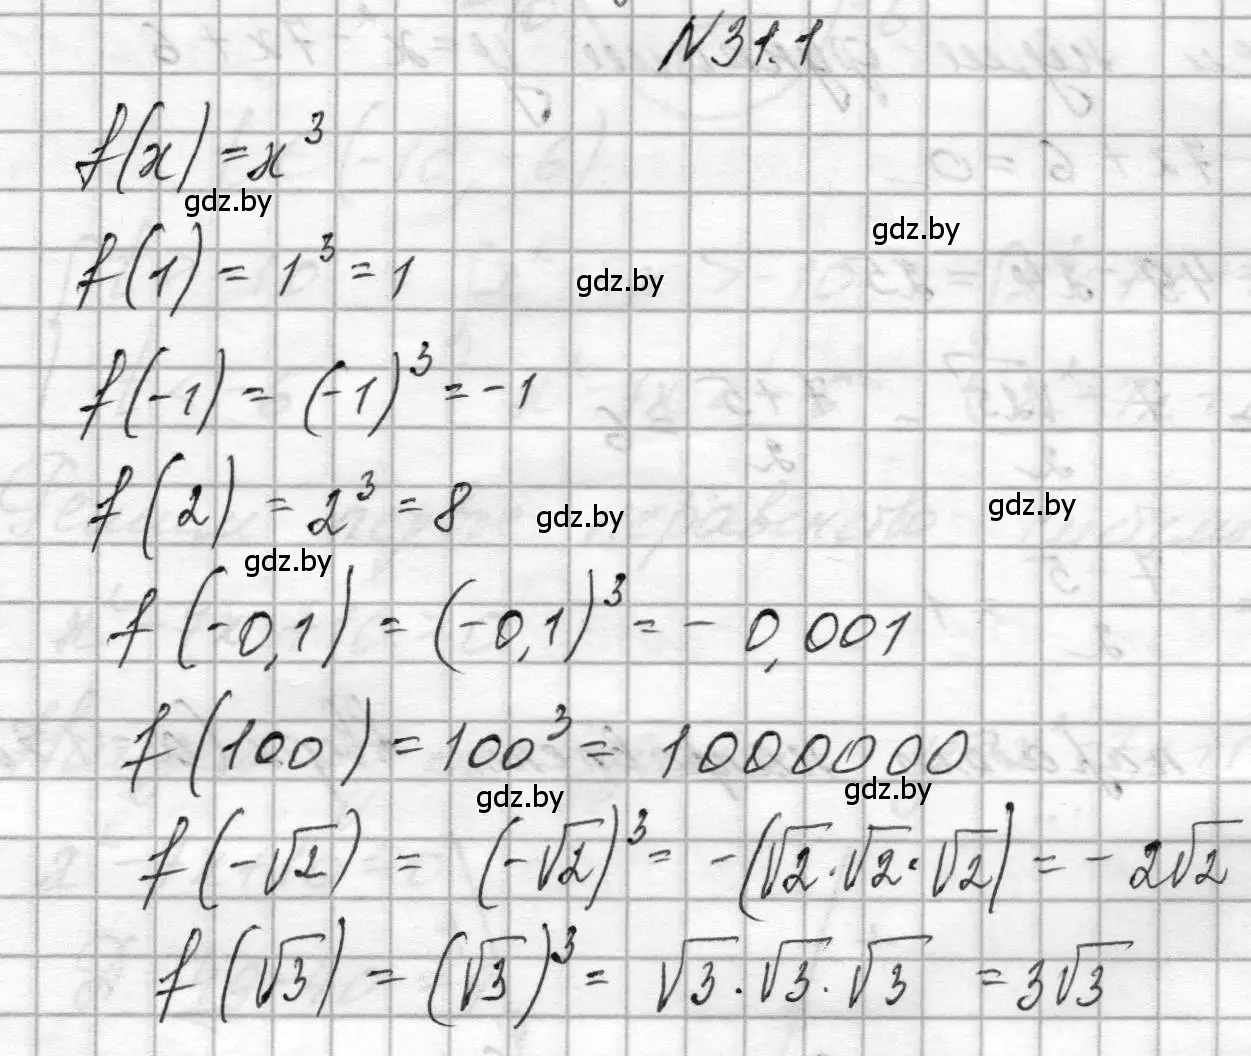 N31.1
f(x) = x³
gdz.by
gdz.by
f(1) = 1³ = 1
gdz.by
f(-1) = (-1)³ = -1
f(2) = 2³ = 8
gdz.by
gdz.by
gdz.by
f(-0,1) = (-0,1)³ = - 0,001
f(100) = 100³ = 1000000
gdz.by
gdz.by
f(-√2) = (-√2)³ = -(√2·√2·√2) = - 2√2
f(√3) = (√3)³ = √3·√3·√3 = 3√3